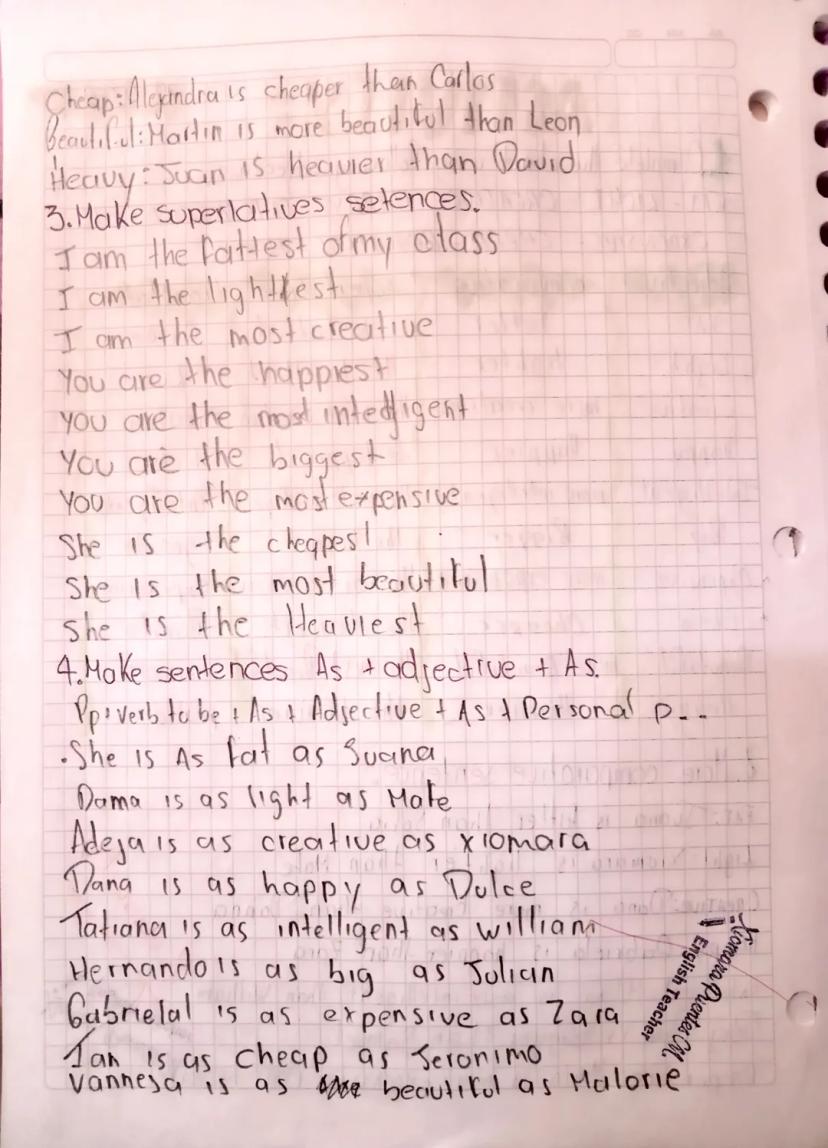 Cheap: Alejandra is cheaper than Carlos
Beautiful: Martin is more beautiful than Leon
Heavy: Juan is heavier than David
3. Make superlatives setences.
I am the fattest of my class
I am the lightest
I am the most creative
You are the happiest
you are the most intelligent
You are the biggest
You are the most expensive
She is the cheapest
She is the most beautiful
She is the Heaviest
4. Make sentences As + adjective + As.
Pp + verb to be + As + Adjective + As + Personal p...
. She is As fat as Suana
Dama is as light as Mate
Adeja is as creative as xiomara
Dana is as happy as Dulce
Tatiana is as intelligent as william
Hernando is as big as Julian
Gabrielal is as expensive as Zara
Ian is as cheap as Jeronimo
Vannesa is as beautiful as Malorie
Xiomara
English Teacher